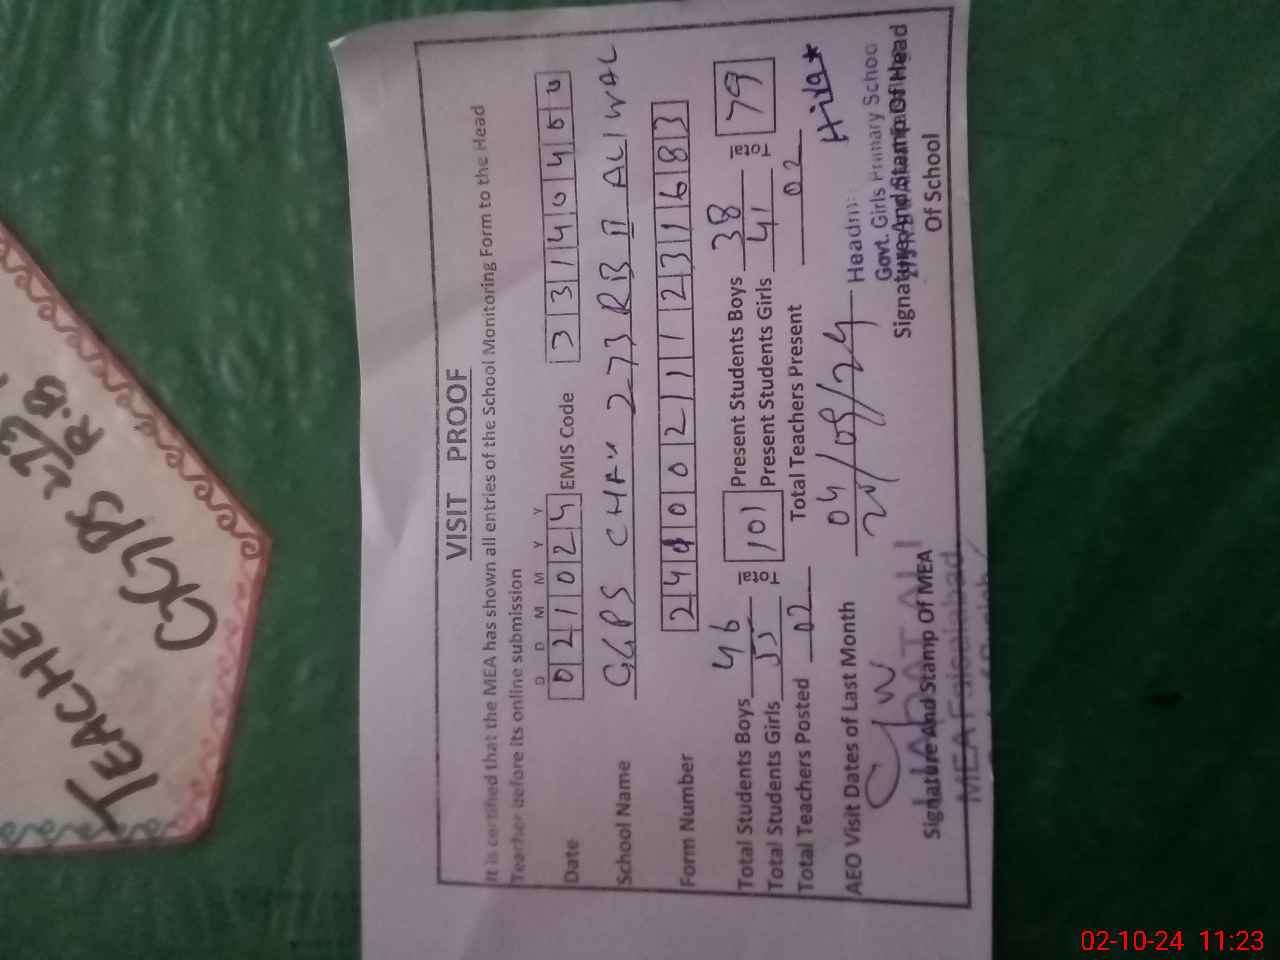 VISIT PROOF
It is certified that the MEA has shown all entries of the School Monitoring Form to the Head
Teacher before its online submission
D D M M Y Y
Date 0 2 1 0 2 4 EMIS Code 3 3 1 4 0 4 0 0
School Name GGPS CHAK 273 RB II ALIWAL
Form Number 2 4 0 0 0 2 1 1 1 2 3 1 6 8 3
Total Students Boys 46 101 Present Students Boys 38 79
Total Students Girls 55 Present Students Girls 41
Total Teachers Posted 02 Total Teachers Present 02
AEO Visit Dates of Last Month 04/09/24
Hira
Govt. Girls Primary School
Signature And Stamp Of MEA
Signature And Stamp Of Head
Of School
MEA Faisalabad
TEACHER
GGPS 273
R.B
02-10-24 11:23